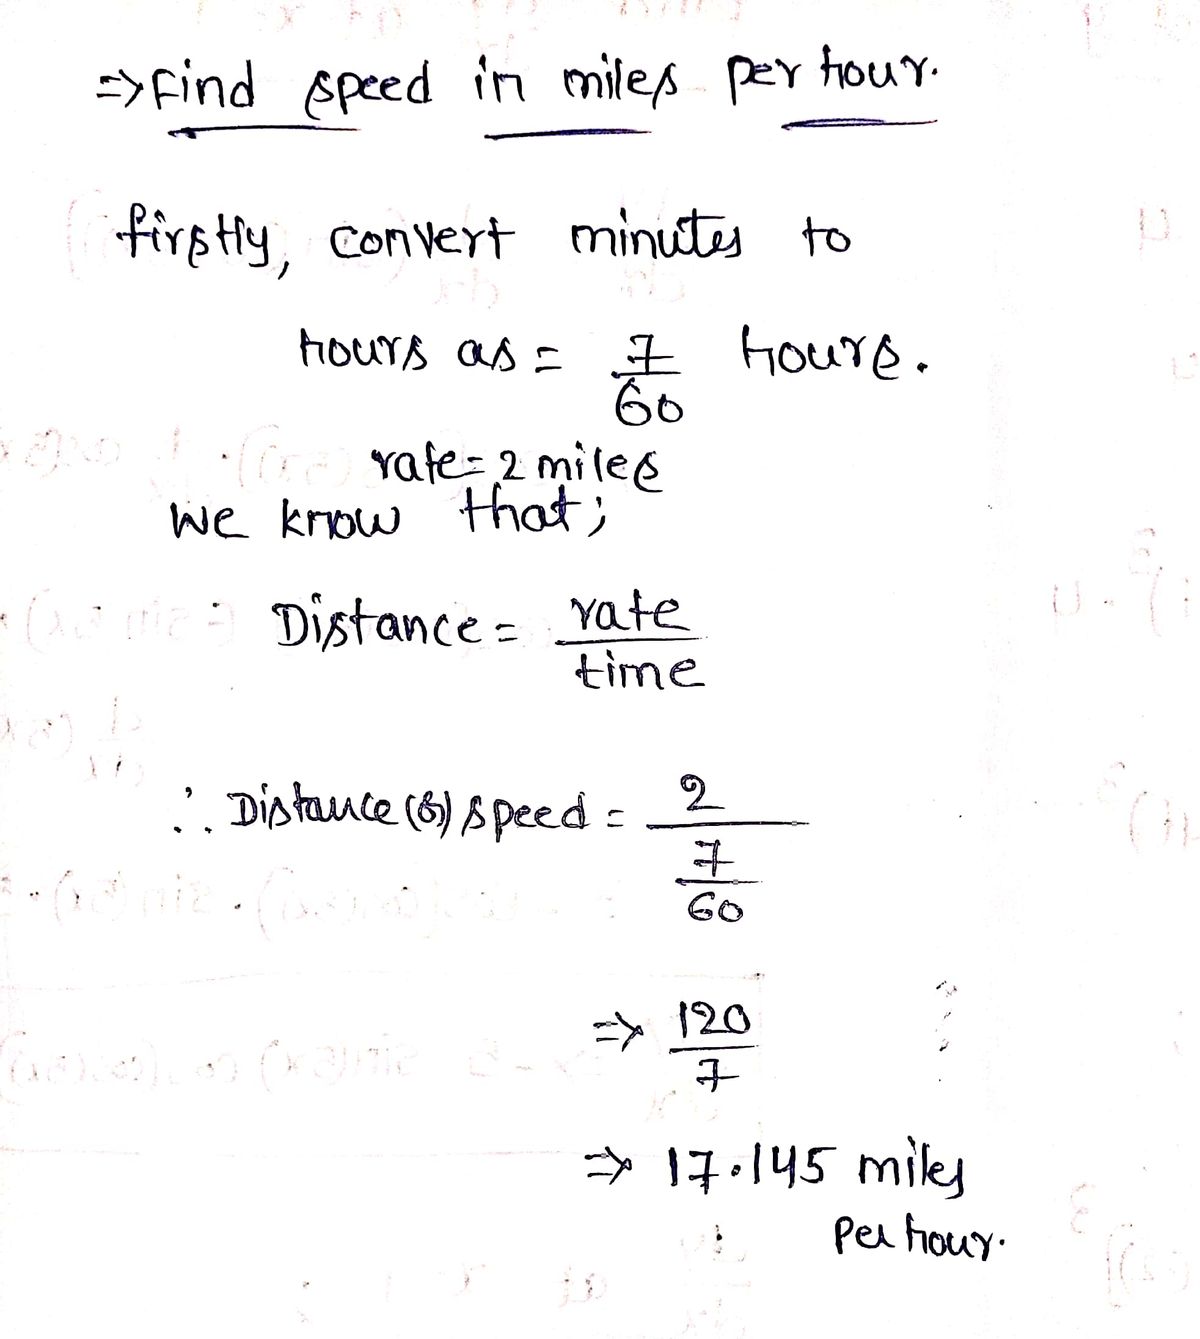 => Find speed in miles per hour.
firstly, convert minutes to
hours as = 7/60 hours.
rate = 2 miles
we know that;
Distance = rate/time
∴ Distance (or) speed = 2/(7/60)
=> 120/7
=> 17.145 miles
per hour.